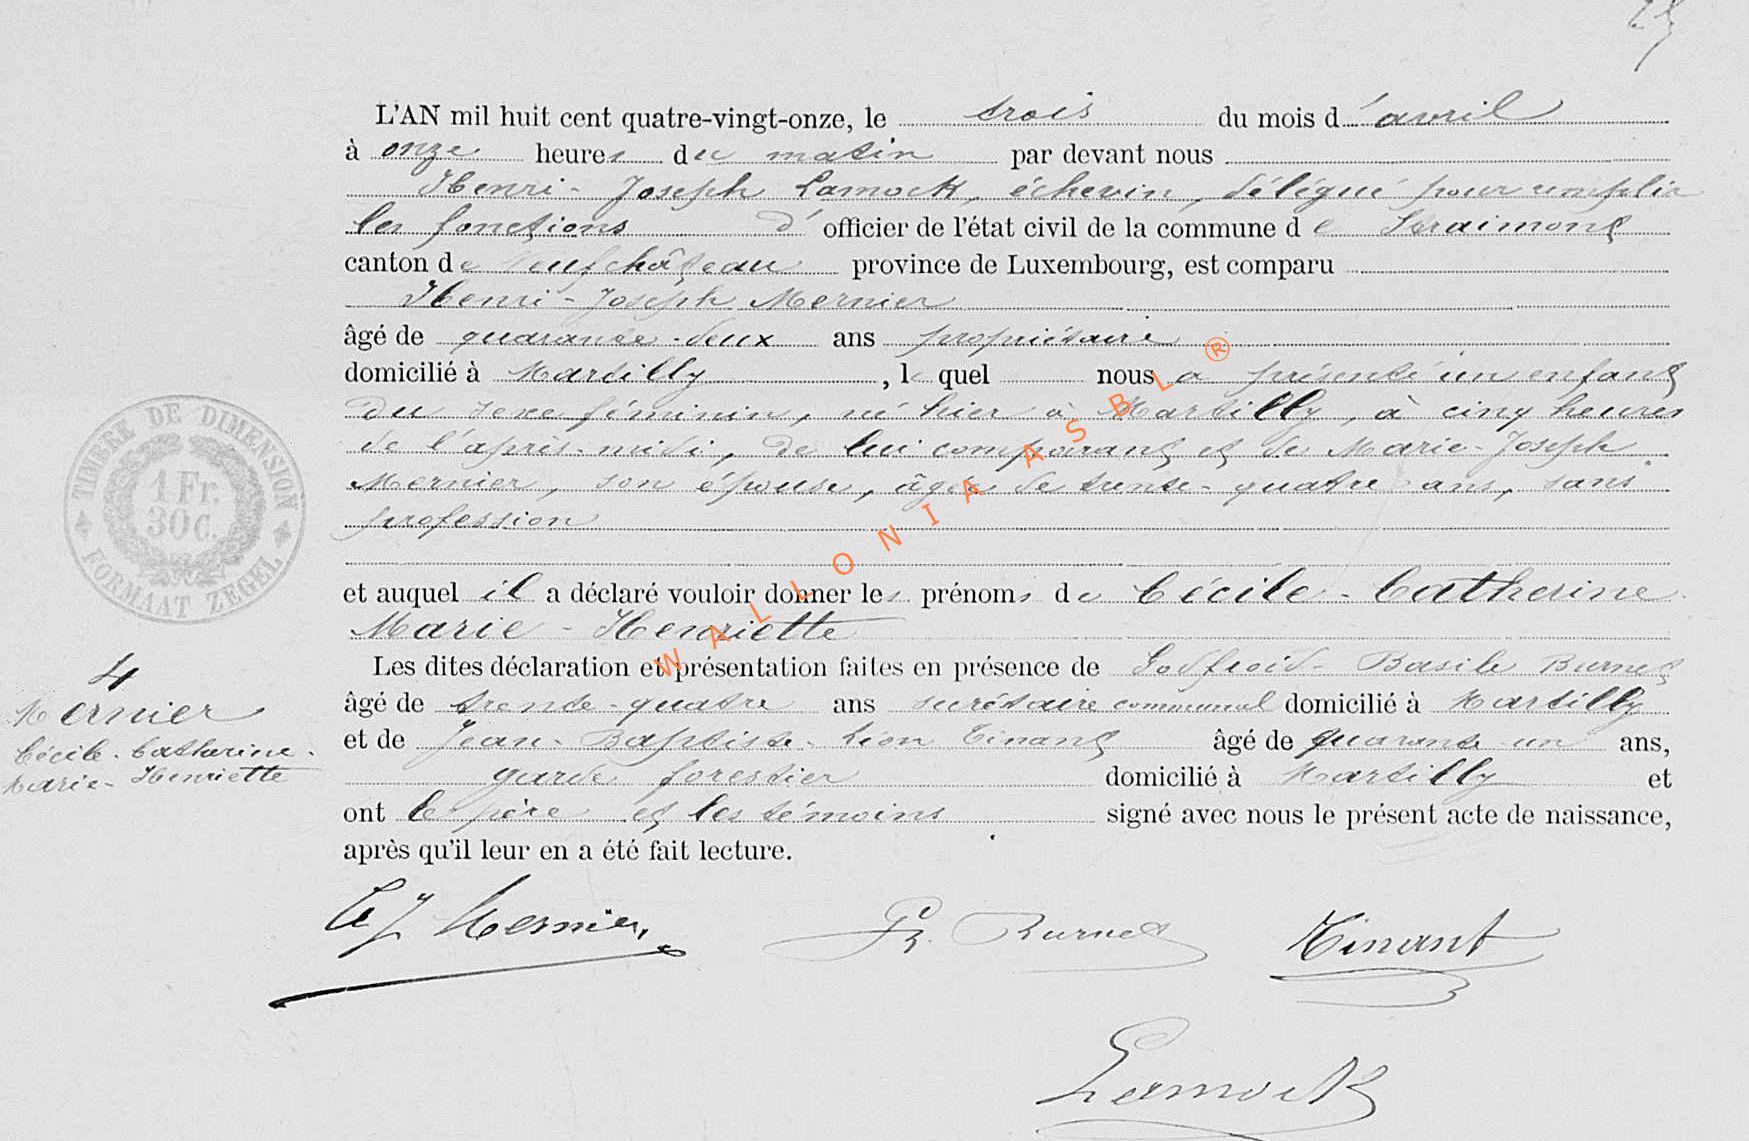 L'AN mil huit cent quatre-vingt-onze, le trois du mois d'avril
à onze heures du matin par devant nous
Henri-Joseph Lamock, échevin, délégué pour remplir
les fonctions d'officier de l'état civil de la commune de Straimont
canton de Neufchâteau province de Luxembourg, est comparu
Henri-Joseph Mernier
âgé de quarante-deux ans propriétaire
domicilié à Martilly, le quel nous a présenté un enfant
du sexe féminin, né hier à Martilly, à cinq heures
de l'après-midi, de lui comparant et de Marie-Joseph
Mernier, son épouse, âgée de trente-quatre ans, sans
profession
et auquel il a déclaré vouloir donner les prénoms de Cécile-Catherine
Marie-Henriette
Les dites déclaration et présentation faites en présence de Godfroid-Basile Burnet
âgé de trente-quatre ans secrétaire communal domicilié à Martilly
et de Jean-Baptiste-Léon Tinant âgé de quarante-un ans,
garde forestier domicilié à Martilly et
ont le père et les témoins signé avec nous le présent acte de naissance,
après qu'il leur en a été fait lecture.
Mernier
Burnet
Tinant
Lamock
4
Mernier
Cécile-Catherine-
Marie-Henriette
TIMBRE DE DIMENSION
1 Fr.
30 C.
FORMAAT ZEGEL
WALLONIA ASBL ®